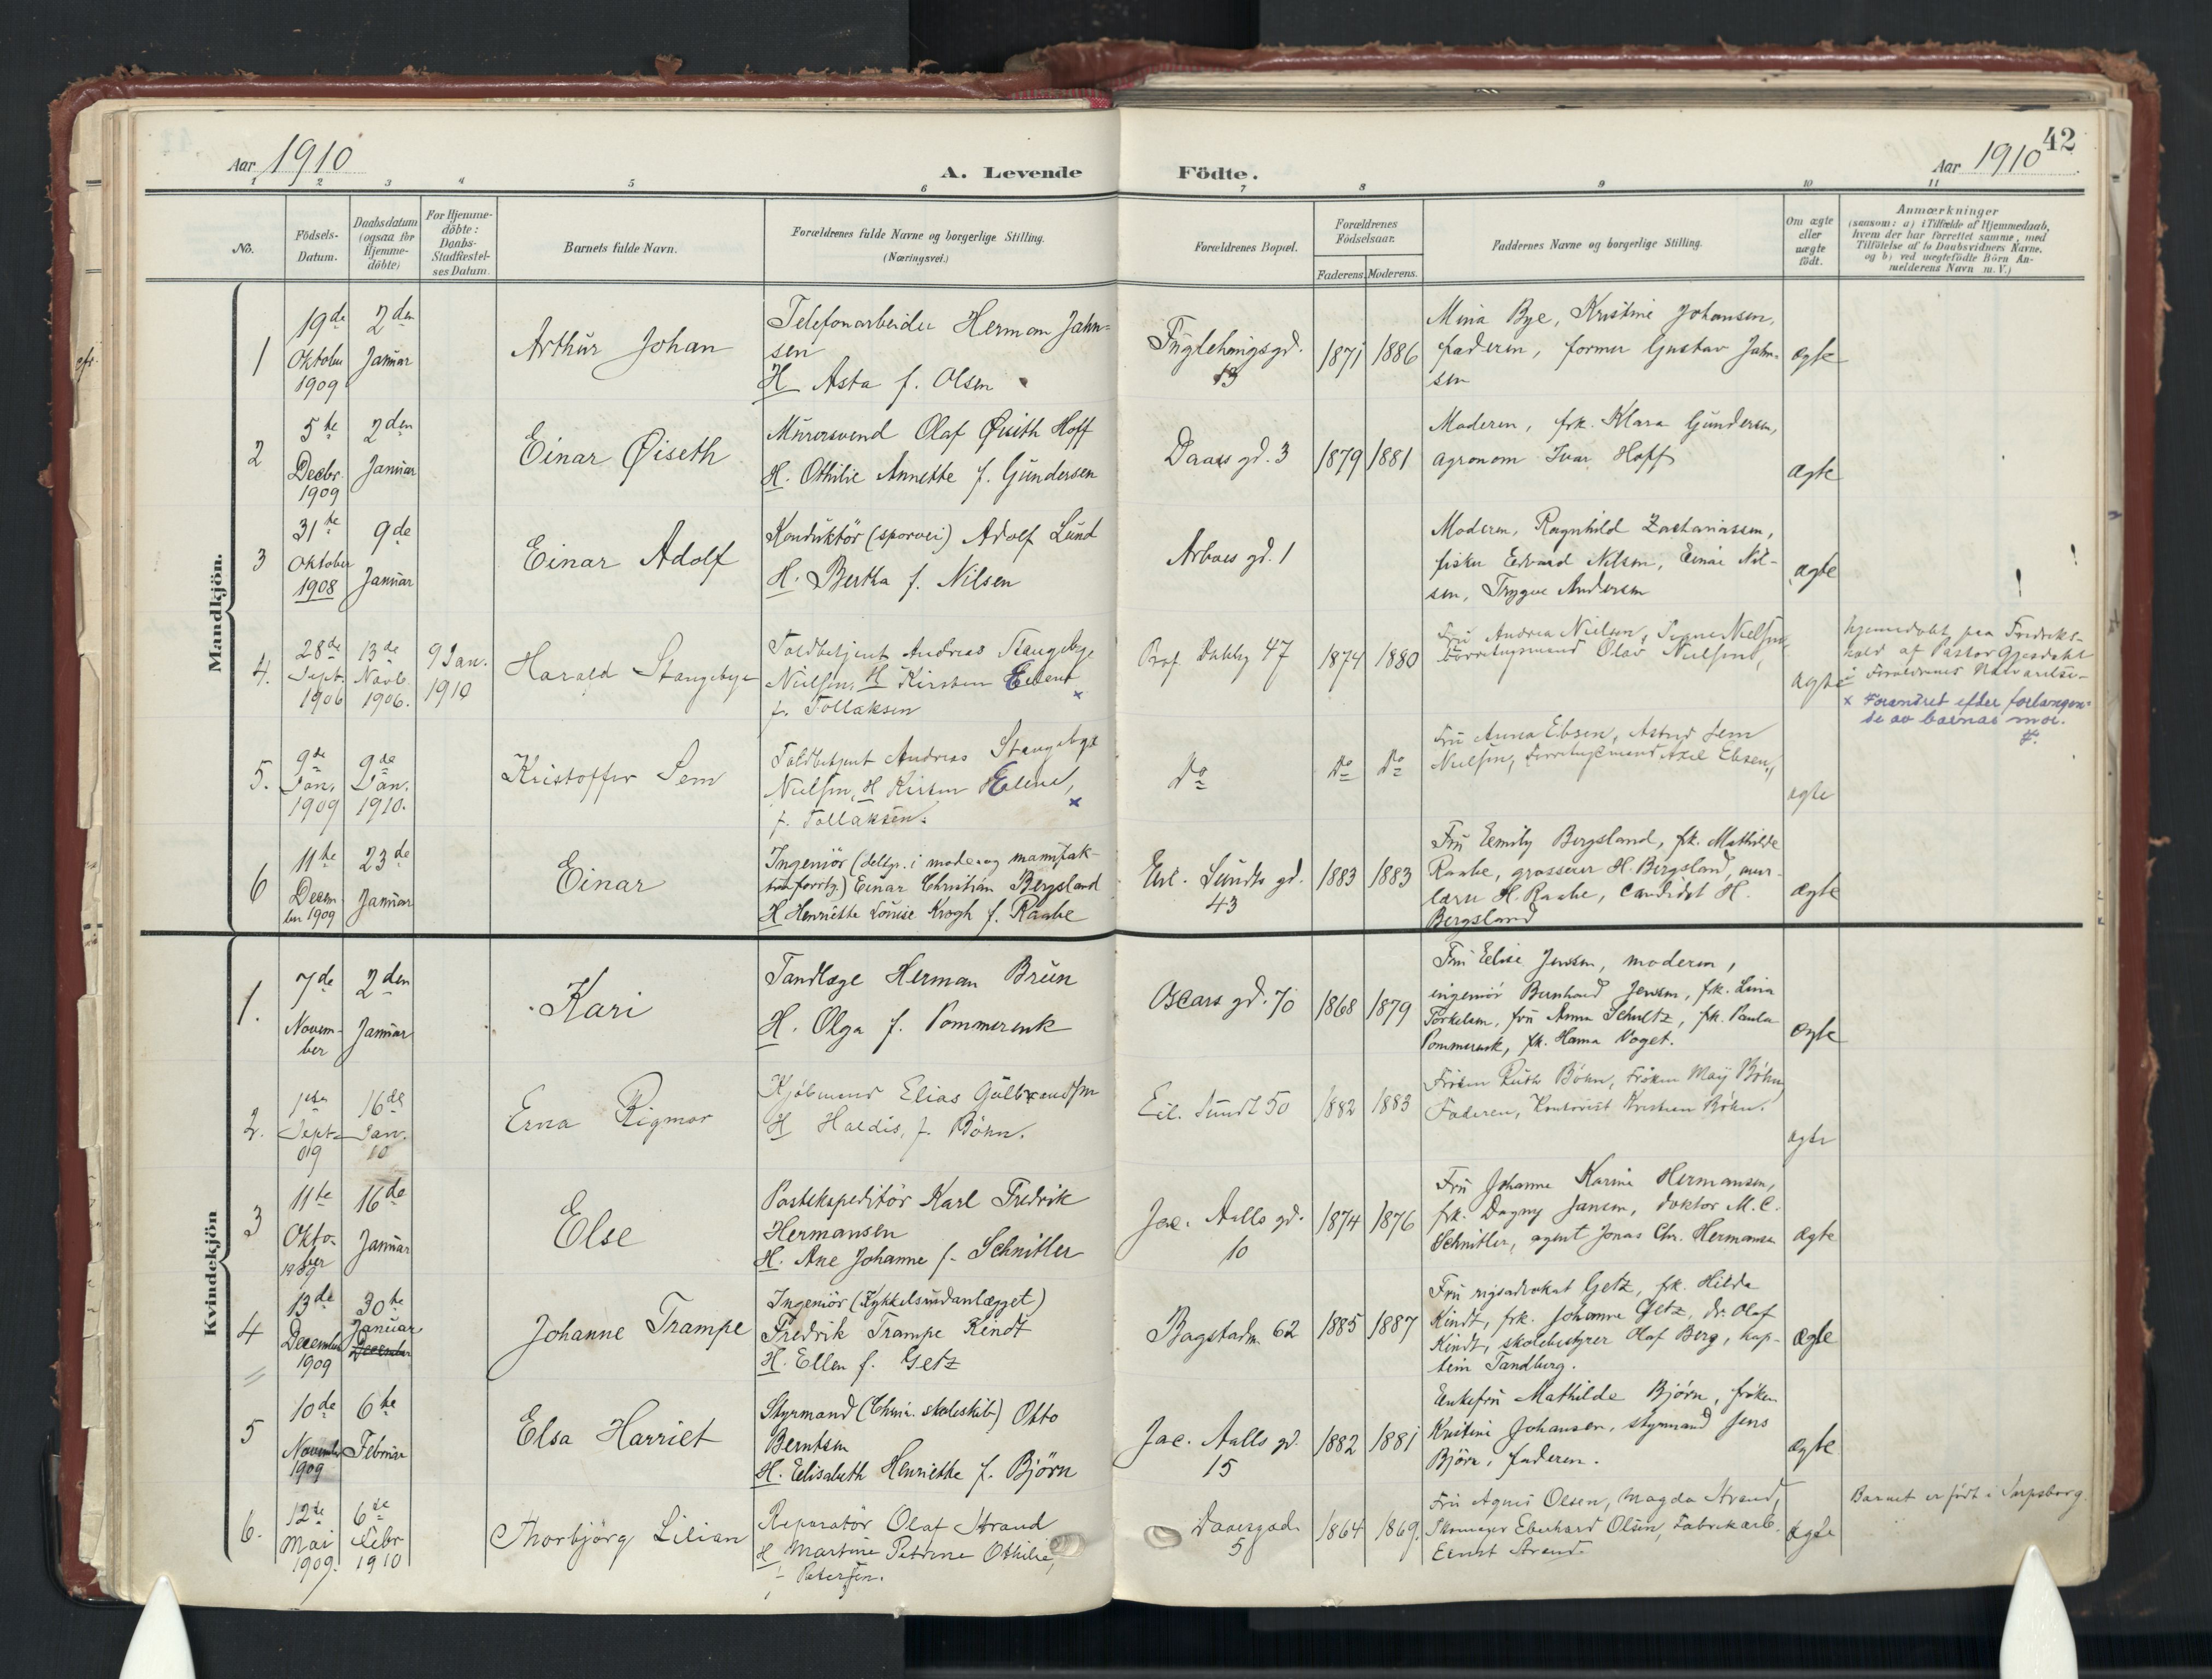 42
Aar 1910
A. Levende Födte.
Aar 1910
1 2 3 4 5 6 7 8 9 10 11
No.
Födsels-Datum.
Daabsdatum (ogsaa for Hjemme-döbte)
For Hjemme-döbte: Daabs-Stadfæstel-ses Datum.
Barnets fulde Navn.
Forældrenes fulde Navne og borgerlige Stilling.
(Næringsvei.)
Forældrenes Bopæl.
Forældrenes Födselsaar.
Faderens. Moderens.
Faddernes Navne og borgerlige Stilling.
Om ægte eller uægte født.
Anmærkninger
(saasom: a) i Tilfælde af Hjemmedaab,
hvem der har forrettet samme, med
Tilföielse af to Daabsvidners Navne,
og b) ved uægtefödte Börn An-
melderens Navn m. V.)
Mandkjön.
1
19de Oktober 1909
2den Januar
Arthur Johan
Telefonarbeider Herman Jahn-
sen
H Asta f. Olsen
Fuglehaugsgd.
13
1871 1886
Mina Bye, Kristine Johansen,
faderen, former Gustav Jahn-
sen
ægte
2
5te Decbr. 1909
2den Januar
Einar Øiseth
Murersvend Olaf Øiseth Hoff
H. Othilie Annette f. Gundersen
Daaes gd. 3
1879 1881
Moderen, frk. Klara Gundersen,
agronom Ivar Hoff
ægte
3
31te Oktober 1908
9de Januar
Einar Adolf
Konduktör (sporvei) Adolf Lund
H. Bertha f. Nilsen
Arboes gd. 1
Moderen, Ragnhild Zachariassen,
fisker Edvard Nilsen, Einar Nil-
sen, Trygve Andersen
ægte
4.
28de Sept. 1906
13de Novb. 1906.
9 Jan. 1910
Harald Stangebye
Toldbetjent Andreas Stangebye
Nielsen, H Kirsten Elena x
f. Tollaksen
Prof. Dahls g 47
1874 1880
Fru Andrea Nielsen, Signe Nielsen,
Forretningsmand Olav Nielsen,
ægte
hjemmedøbt paa Fredriks-
hald af Pastor Gjesdahl
i Forældrenes Nærværelse.
x Forandret efter forlangen-
de av barnas mor.
5.
9de Jan. 1909
9de Jan. 1910.
Kristoffer Sem
Toldbetjent Andreas Stangebye
Nielsen, H Kirsten Elena, x
f. Tollaksen.
Do
Do Do
Fru Anna Ebsen, Astrid Sem
Nielsen, Forretningsmand Axel Ebsen,
ægte
6
11te Decem-ber 1909
23de Januar
Einar
Ingeniör (deltgr. i mode og manufak-
turforrtg.) Einar Christian Bergsland
H Henriette Louise Krogh f. Raabe
Eil. Sundts gd.
43
1883 1883
Fru Emily Bergsland, frk. Mathilde
Raabe, grosserer H. Bergsland, over-
lærer H. Raabe, candidat H.
Bergsland
ægte
Kvindekjön
1.
7de Novem-ber
2den Januar
Kari
Tandlæge Herman Brun
H. Olga f. Pommerenk
Oscars gd. 70
1868 1879
Fru Elise Jensen, moderen,
ingeniör Bernhard Jensen, frk. Lina
Torkelsen, fru Anna Schultz, frk. Paula
Pommerenk, frk. Hanna Voget.
ægte
2.
1ste Sept. 09
16de Jan. 10
Erna Rigmor
Kjøbmand Elias Gulbrandsen
H Haldis, f. Böhn.
Eil. Sundt 50
1882 1883
Frøken Ruth Böhn, Frøken Maij Böhn,
Faderen, Kontorist Kristian Böhn.
ægte
3
11te Okto-ber 1909
16de Januar
Else
Postekspeditör Karl Fredrik
Hermansen
H. Ane Johanne f. Schnitler
Jac. Aalls gd.
10
1874 1876
Fru Johanne Karine Hermansen,
frk. Dagny Jansen, doktor M. C.
Schnitler, agent Jonas Chr. Hermansen
ægte
4
13de December 1909
30te Januar December
Johanne Trampe
Ingeniör (Kykkelsrudanlægget)
Fredrik Trampe Kindt
H. Ellen f. Getz
Bogstadv. 62
1885 1887
Fru rigsadvokat Getz, frk. Hilda
Kindt, frk. Johanne Getz, dr. Olaf
Kindt, skolebestyrer Olaf Berg, kap-
tein Tandberg.
ægte
5
10de November 1909
6te Februar
Elsa Harriet
Styrmand (Chr.a. skoleskib) Otto
Berntsen
H. Elisabeth Henriette f. Björn
Jac. Aalls gd.
15
1882 1881
Enkefru Mathilde Björn, fröken
Kristine Johansen, styrmand Jens
Björn, faderen.
ægte
6.
12te Mai 1909.
6te Febr 1910
Thorbjörg Lilian
Reparatör Olaf Strand
H Martine Petrine Othilie,
f. Petersen.
Daaesgade
5
1864 1869.
Fru Agnes Olsen, Magda Strand,
Skomager Eberhard Olsen, Fabrikarb.
Ernst Strand.
ægte
Barnet er født i Sarpsborg.